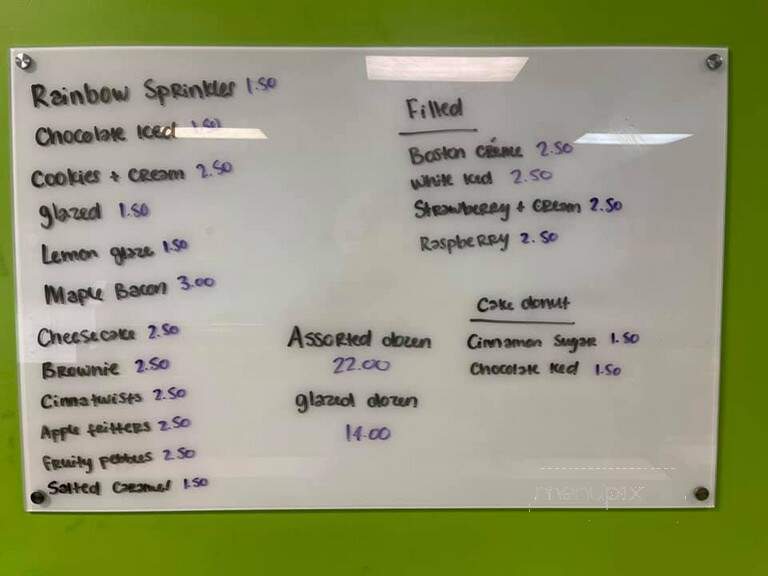 Rainbow Sprinkles 1.50
Chocolate Iced 1.50
Cookies + Cream 2.50
glazed 1.50
Lemon glaze 1.50
Maple Bacon 3.00
Cheesecake 2.50
Brownie 2.50
Cinnatwists 2.50
Apple fritters 2.50
Fruity pebbles 2.50
Salted Caramel 1.50
Assorted dozen
22.00
glazed dozen
14.00
Filled
Boston Crème 2.50
White Iced 2.50
Strawberry + Cream 2.50
Raspberry 2.50
Cake donut
Cinnamon Sugar 1.50
Chocolate Iced 1.50
menupix